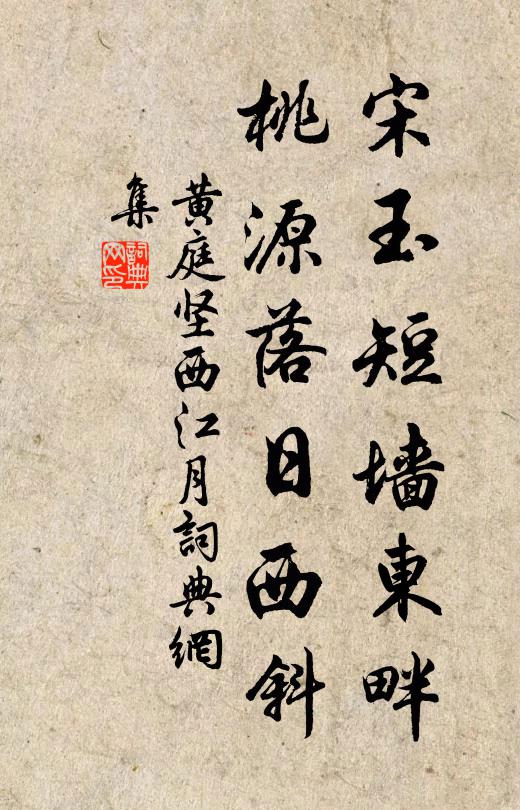 宋玉短墙東畔
桃源落日西斜
黄庭坚西江月詞典網
集
詞典网印